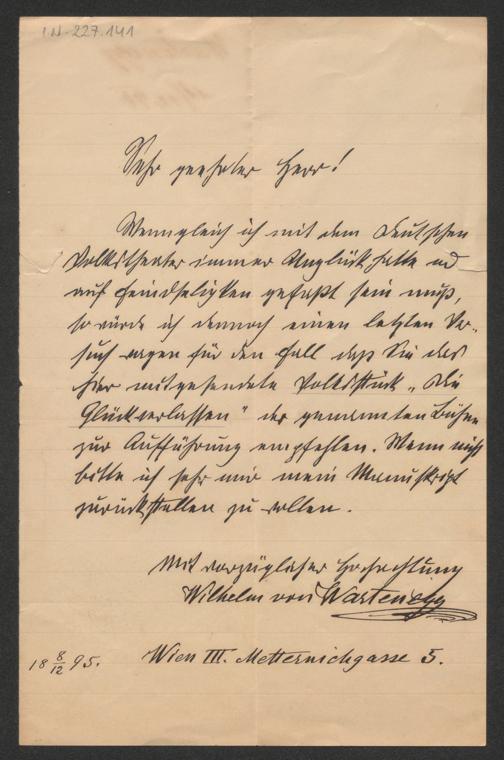 I.N. 227.141
Sehr geehrter Herr!
Wenngleich ich mit dem Deutschen
Volkstheater immer Unglück hatte und
auf Feindseligkeiten gefaßt sein muß,
so würde ich dennoch einen letzten Ver-
such wagen für den Fall daß Sie das
hier mitgesendete Volksstück „Die
Glückverlassen" der genannten Bühne
zur Aufführung empfehlen. Wenn nicht
bitte ich sehr mir mein Manuskript
zurückstellen zu wollen.
Mit vorzüglicher Hochachtung
Wilhelm von Wartenegg
18 8/12 95. Wien III. Metternichgasse 5.